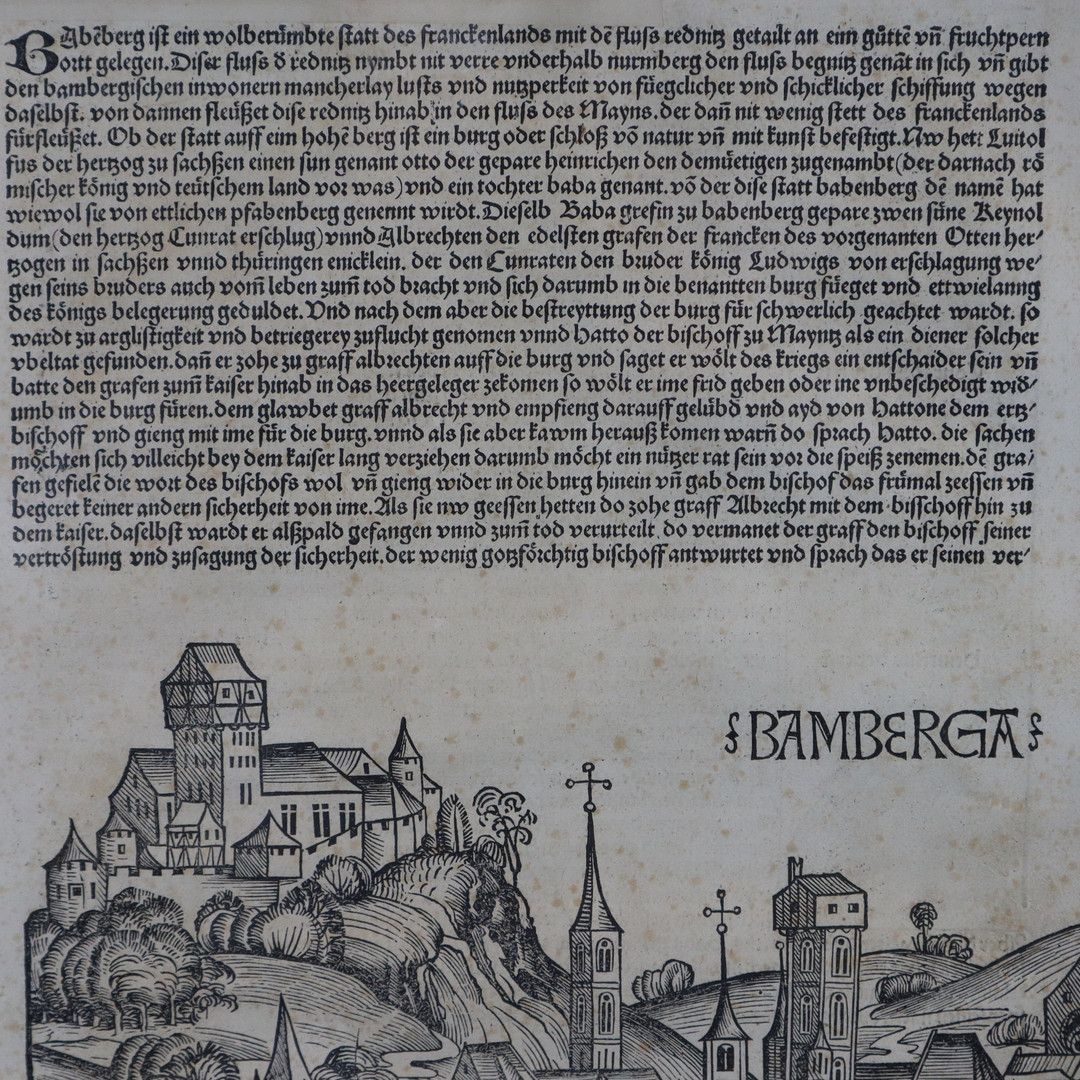 BAbẽberg ist ein wolberümbte statt des franckenlands mit dẽ fluss rednitz getailt an eim gůttẽ vñ fruchtpern
ortt gelegen. Diser fluss d̄ rednitz nymbt nit verre vnderhalb nurmberg den fluss begnitz genãt in sich vñ gibt
den bambergischen inwonern mancherlay lusts vnd nutzperkeit von füegclicher vnd schicklicher schiffung wegen
daselbst. von dannen fleüßet dise rednitz hinab in den fluss des Mayns. der dañ nit wenig stett des franckenlands
fürfleüßet. Ob der statt auff eim hohẽ berg ist ein burg oder schloß võ natur vñ mit kunst befestigt. Nw hett Luitol
fus der hertzog zu sachßen einen sun genant otto der gepare heinrichen den demüetigen zugenambt (der darnach rö
mischer könig vnd teütschem land vor was) vnd ein tochter baba genant. võ der dise statt babenberg dẽ namẽ hat
wiewol sie von ettlichen pfabenberg genennt wirdt. Dieselb Baba grefin zu babenberg gepare zwen süne Reynol
dum (den hertzog Cunrat erschlug) vnnd Albrechten den edelsten grafen der francken des vorgenanten Otten her⸗
tzogen in sachßen vnnd thüringen enicklein. der den Cunraten den bruder könig Ludwigs von erschlagung we⸗
gen seins bruders auch vom̃ leben zum̃ tod bracht vnd sich darumb in die benantten burg füeget vnd ettwielanng
des königs belegerung geduldet. Vnd nach dem aber die bestreyttung der burg für schwerlich geachtet wardt. so
wardt zu arglistigkeit vnd betriegerey zuflucht genomen vnnd Hatto der bischoff zu Mayntz als ein diener solcher
vbeltat gefunden. dañ er zohe zu graff albrechten auff die burg vnd saget er wölt des kriegs ein entschaider sein vñ
batte den grafen zum̃ kaiser hinab in das heergeleger zekomen so wölt er ime frid geben oder ine vnbeschedigt wid⸗
umb in die burg füren. dem glawbet graff albrecht vnd empfieng darauff gelübd vnd ayd von Hattone dem ertz⸗
bischoff vnd gieng mit ime für die burg. vnnd als sie aber kawm herauß komen warñ do sprach Hatto. die sachen
möchten sich villeicht bey dem kaiser lang verziehen darumb möcht ein nützer rat sein vor die speiß zenemen. dẽ gra⸗
fen gefielẽ die wort des bischofs wol vñ gieng wider in die burg hinein vñ gab dem bischof das frümal zeessen vñ
begeret keiner andern sicherheit von ime. Als sie nw geessen hetten do zohe graff Albrecht mit dem bisschoff hin zu
dem kaiser. daselbst wardt er alßpald gefangen vnnd zum̃ tod verurteilt. do vermanet der graff den bischoff seiner
vertröstung vnd zusagung der sicherheit. der wenig gotzförchtig bischoff antwurtet vnd sprach das er seinen ver⸗
BAMBERGA